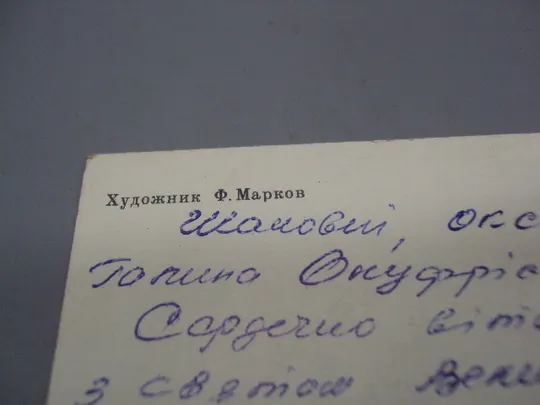 Художник Ф. Марков
Шановні,
Галина Онуфрiє
Сердечно віта
з святом Вели